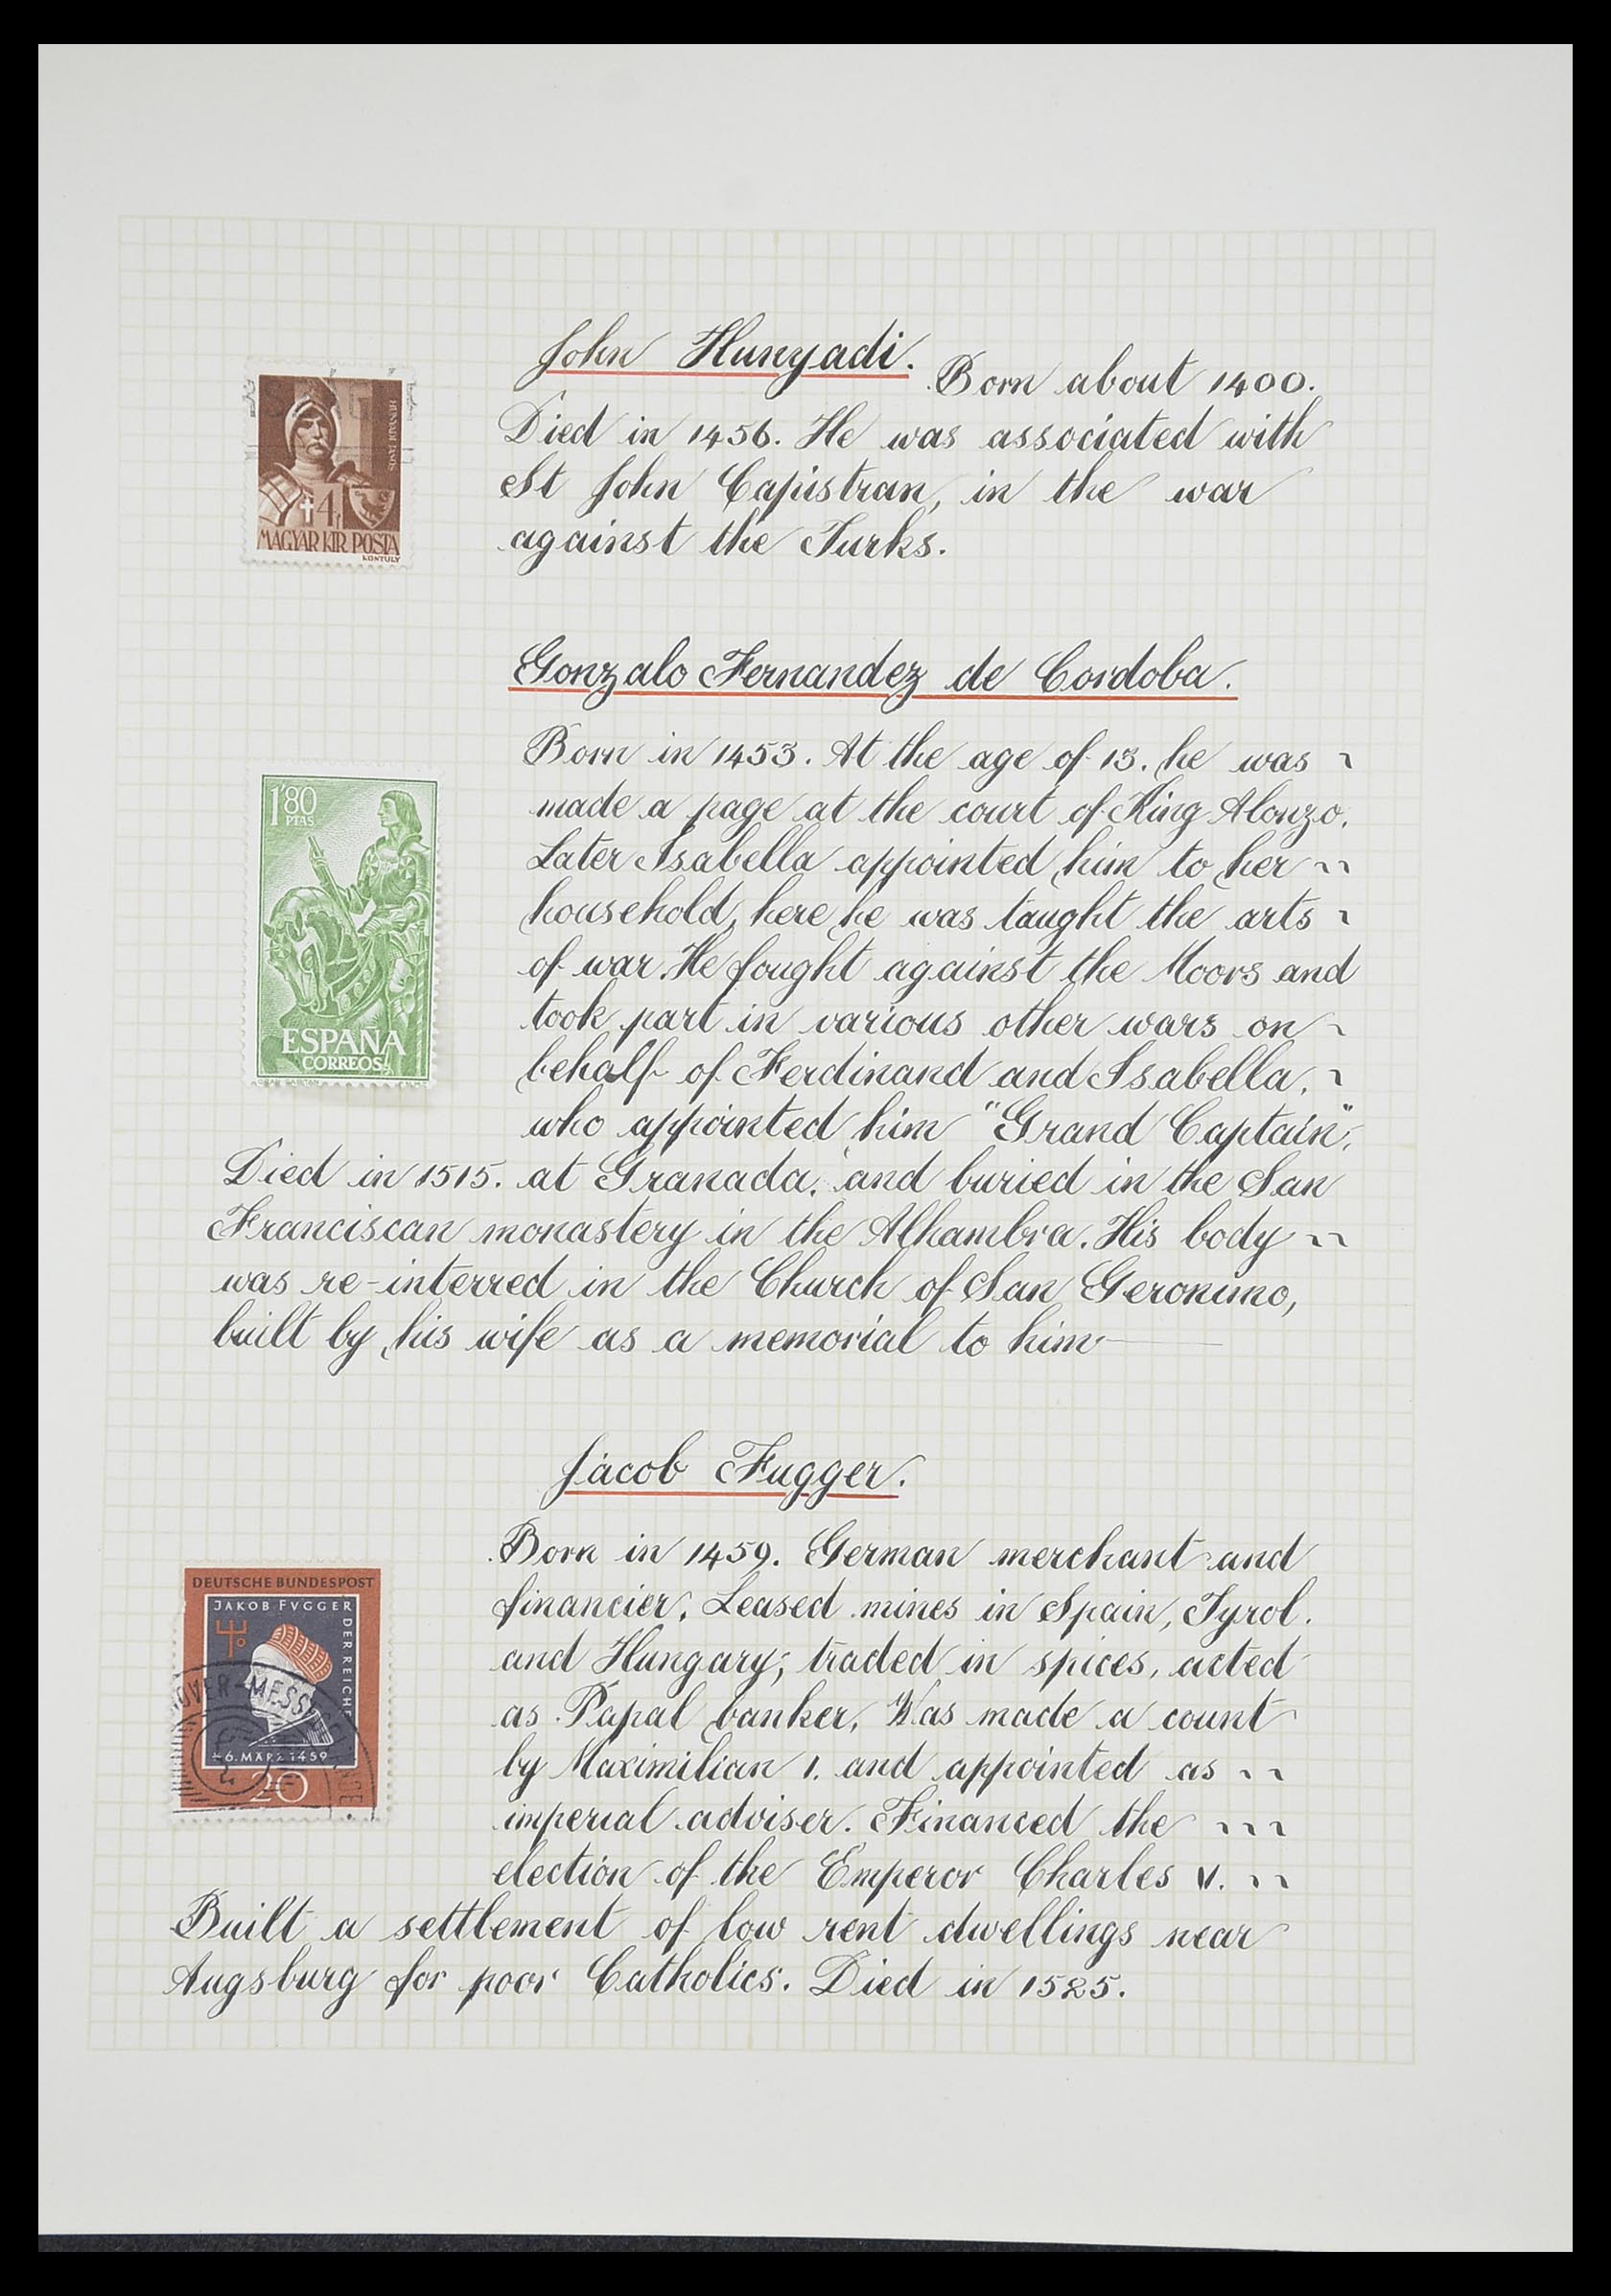 John Hunyadi. Born about 1400.
Died in 1456. He was associated with
St John Capistran, in the war
against the Turks.
HUNYADI JÁNOS
4f
MAGYAR KIR. POSTA
KONTULY
Gonzalo Fernandez de Cordoba.
Born in 1453. At the age of 13. he was
made a page at the court of King Alonzo.
Later Isabella appointed him to her
household, here he was taught the arts
of war. He fought against the Moors and
took part in various other wars on
behalf of Ferdinand and Isabella,
who appointed him "Grand Captain".
Died in 1515. at Granada. and buried in the San
Franciscan monastery in the Alhambra. His body
was re-interred in the Church of San Geronimo,
built by his wife as a memorial to him
1'80
PTAS
ESPAÑA
CORREOS
Jacob Fugger.
Born in 1459. German merchant and
financier. Leased mines in Spain, Tyrol.
and Hungary; traded in spices, acted
as Papal banker, Was made a count
by Maximilian 1. and appointed as
imperial adviser. Financed the
election of the Emperor Charles V.
Built a settlement of low rent dwellings near
Augsburg for poor Catholics. Died in 1525.
DEUTSCHE BUNDESPOST
JAKOB FVGGER
DER REICHE
*6. MÄRZ 1459
20